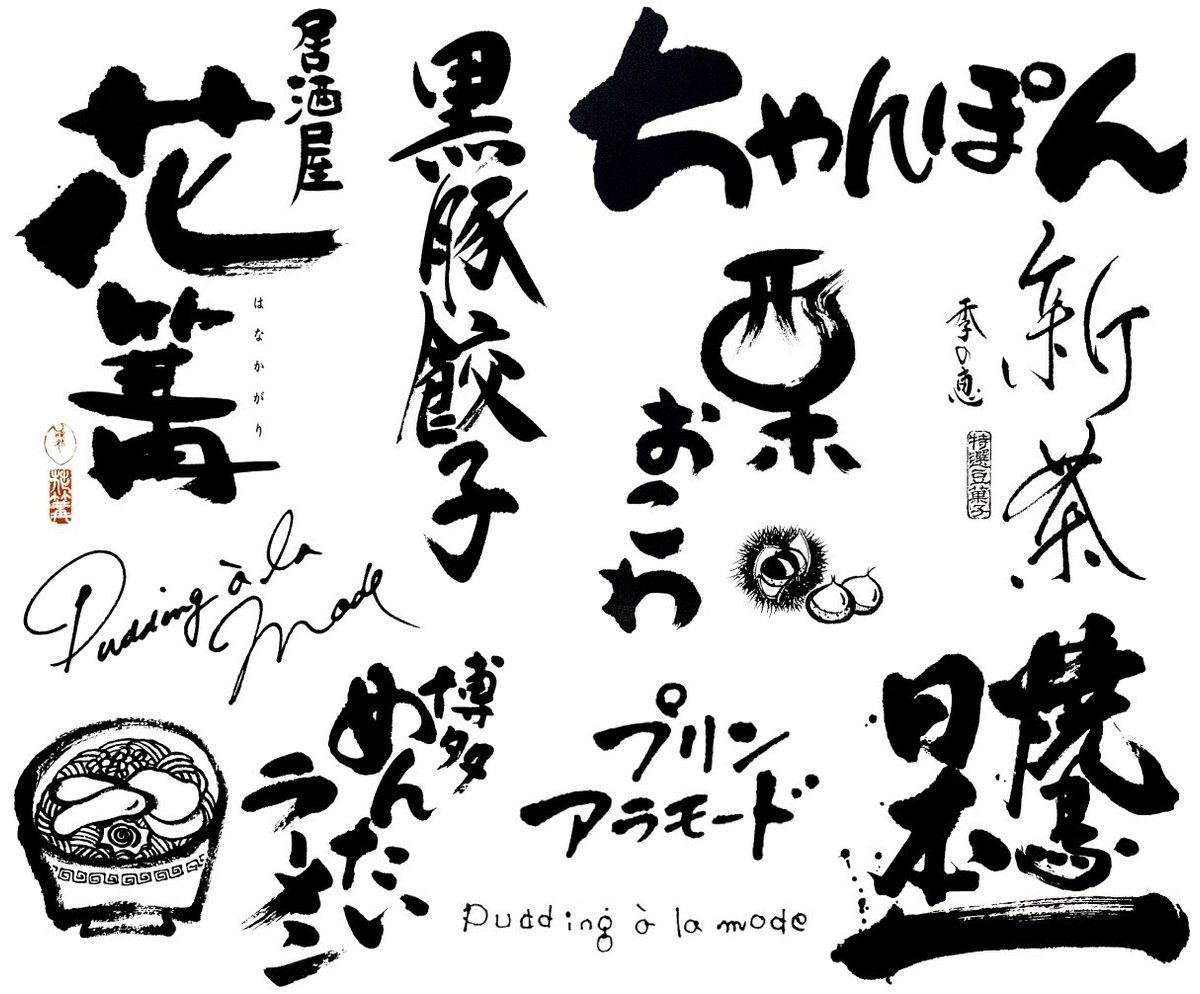 居酒屋
花篝
はなかがり
花篝
黒豚餃子
ちゃんぽん
栗
おこわ
新茶
季の恵
特選豆菓子
Pudding à la
Mode
博多
めんたい
ラーメン
プリン
アラモード
Pudding à la mode
焼鳥
日本一